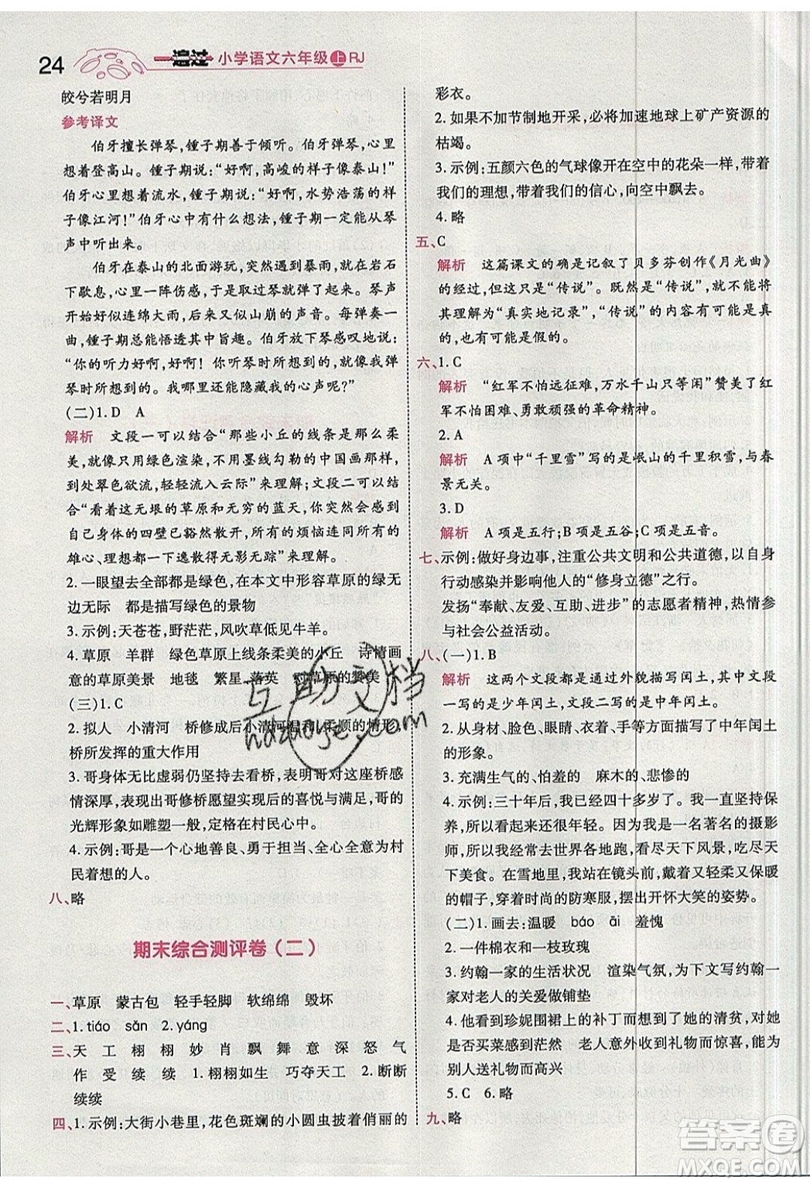 24
一遍过 小学语文六年级上RJ
皎兮若明月
参考译文
伯牙擅长弹琴，锺子期善于倾听。伯牙弹琴，心里
想着登高山。锺子期说：“好啊，高峻的样子像泰山！”
伯牙心里想着流水，锺子期说：“好啊，水势浩荡的样子
像江河！”伯牙心中有什么想法，锺子期一定能从琴声
中听出来。
伯牙在泰山的北面游玩，突然遇到暴雨，就在岩石
下歇息，心里一阵伤感，于是就拿过琴弹了起来。琴声
开始好似连绵大雨，再又如山崩的声音。每弹奏一曲，
锺子期总能悟透其中旨趣。伯牙放下琴感叹地说：
“你的听力好啊！听琴时所想到的意境，就如同我弹
琴时所想到的一样，我还能隐藏我的心声呢？”
(二)1.D A
解析 文段一可以结合“那些小丘的线条是那么柔
美，就像只用绿色渲染，不用墨线勾勒的中国画那样，
到处翠色欲流，轻轻流入云际”来理解；文段二可以结
合“看着无垠的草原和无穷的蓝天，你突然会感到自
己身体的四壁已豁然散开，所有的烦恼连同所有的
雄心、理想都一下逸散得无影无踪”来理解。
2.一眼望去全部都是绿色，在本文中形容草原的绿无
边无际 都是描写绿色的景物
3.示例：天苍苍，野茫茫，风吹草低见牛羊。
4.草原 羊群 绿色草原上线条柔美的小丘 诗情画
意的草原美景 地毯 繁星 落英 对草原的赞美
(三)1.C
2.拟人 小清河 桥修成后小清河温和、柔顺的情形
桥所发挥的重大作用
3.哥身体无比虚弱仍坚持去看桥，表明哥对这座桥感
情深厚，表达出哥修桥愿望实现后的喜悦与满足。哥的
光辉形象如雕塑一般，定格在村民心中。
4.示例：哥是一个心地善良、勇于担当、全心全意为村
民着想的人。
八、略
期末综合测评卷（二）
一、草原 蒙古包 轻手轻脚 软绵绵 毁坏
二、1.tiáo sǎn 2.yáng
三、天 工 栩 栩 妙 肖 飘 舞 意 深 怒 气
作 受 续 续 1.栩栩如生 巧夺天工 2.断断
续续
四、1.示例：大街小巷里，花色斑斓的小圆虫披着俏丽的
彩衣。
2.如果不加节制地开采，必将加速地球上矿产资源的
枯竭。
3.示例：五颜六色的气球像开在空中的花朵一样，带着
我们的理想，带着我们的信心，向空中飘去。
4.略
五、C
解析 这篇课文的确是记叙了贝多芬创作《月光曲》
的经过，但只是“传说”。既然是“传说”，就不能将
其理解为“真实地记录”，“传说”的内容有可能是
真的，也有可能是假的。
六、1.C
解析 “红军不怕远征难，万水千山只等闲”赞美了红
军不怕困难、勇敢顽强的革命精神。
2.A
解析 A项中“千里雪”写的是千里积雪，与春、秋、
雨景无关。
3.D
解析 A项是五行；B项是五谷；C项是五音。
七、示例：做好身边事，注重公共文明和公共道德，用实际
行动感染并影响他人的“修身立德”之行。
发扬“奉献、友爱、互助、进步”的志愿者精神，热情参
与社会公益活动。
八、(一)1.B
解析 这两个文段都是通过外貌描写闰土的，文段
一写的是少年闰土，文段二写的是中年闰土。
2.从身材、脸色、眼睛、衣着、手等方面描写了中年闰土
的形象。
3.充满生气的、怕羞的 麻木的、悲惨的
4.示例：三十年后，我已经四十多岁了。我一直坚持保
养，所以看起来还很年轻。我因为是一名著名的摄影
师，日子过得很好，看尽天下风景，吃尽天下美食，享尽
天下欢乐。在雪地里，我站在镜头前，戴着又轻又暖和
的帽子，穿着时尚的防寒服，摆出开怀大笑的姿势。
(二)1.画去：温暖 báo āi 羞愧
2.一件棉衣和一枝玫瑰
3.约翰一家的生活状况 渲染气氛，为下文描写约翰
一家对老人的关爱做铺垫
4.示例：他看到珍妮围裙上的补丁而想到她的清贫，对
有买菜感到歉意和难为情 老人意外收到礼物而激动，
也因能为别人送出礼物而高兴
5.C 6.略
九、略
互助文档
huzhuge.com
答案圈
MXQE.COM